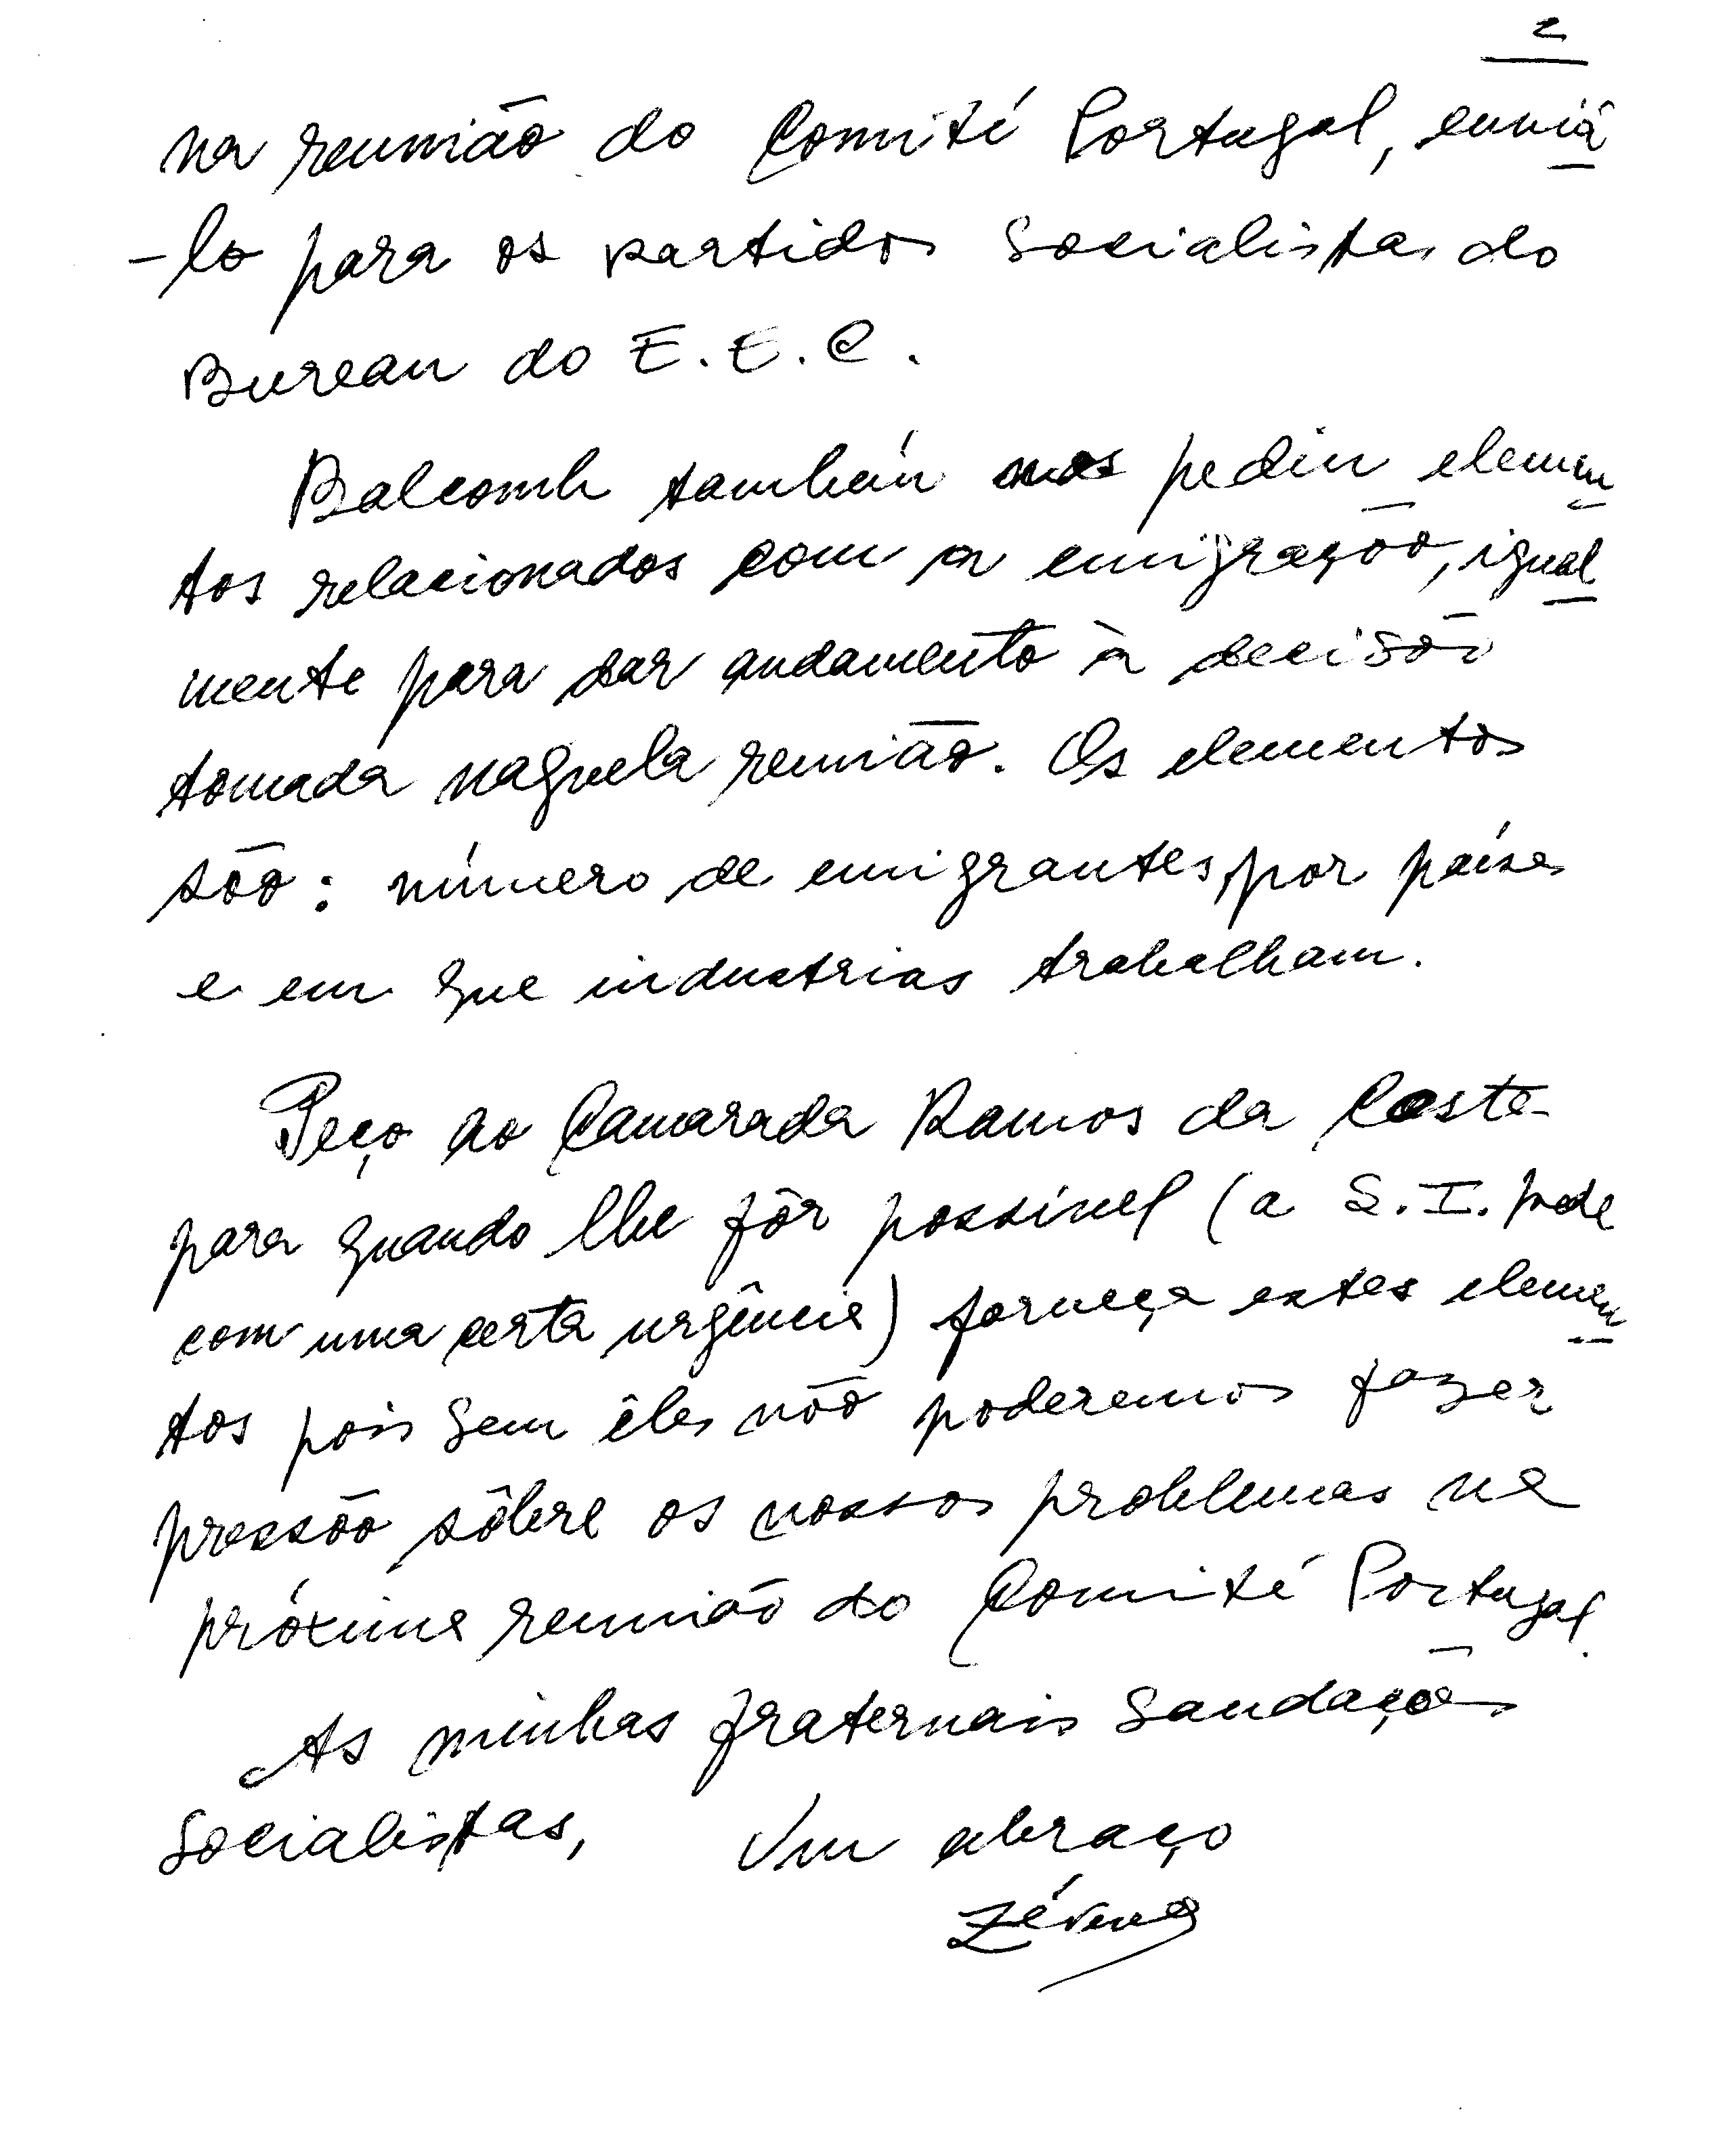 2
na reunião do Comité Portugal, enviá
-lo para os partidos socialistas do
Bureau do E.E.C.
Balcomb também nos pediu elemen
tos relacionados com a emigração, igual
mente para dar andamento à decisão
tomada naquela reunião. Os elementos
são: número de emigrantes por países
e em que industrias trabalham.
Peço ao Camarada Ramos da Costa
para quando lhe fôr possível (a S.I. pede
com uma certa urgência) forneça estes elemen
tos pois sem êles não poderemos fazer
pressão sôbre os nossos problemas na
próxima reunião do Comité Portugal.
As minhas fraternais saudações
socialistas, Um abraço